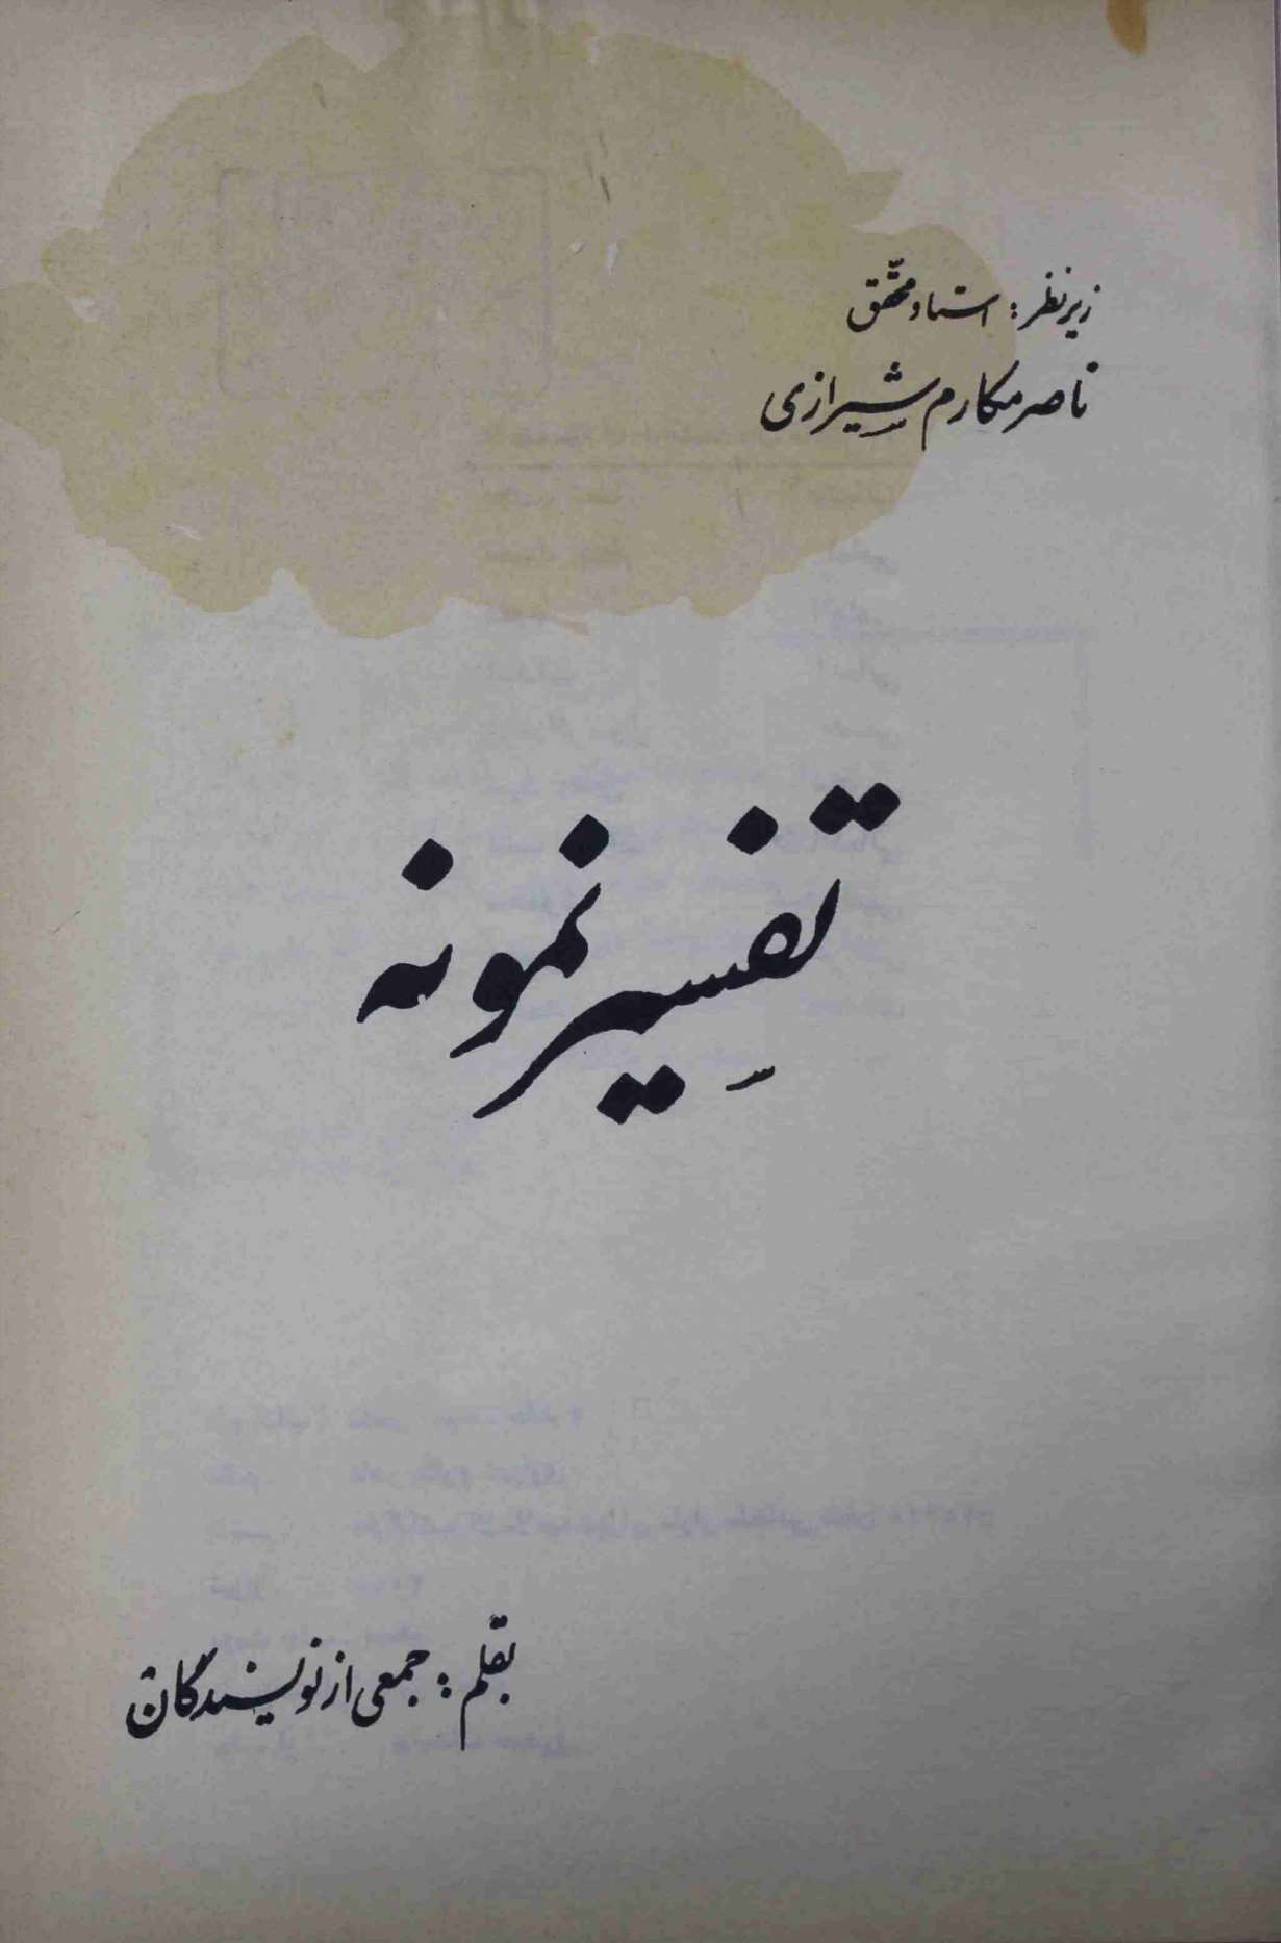 زیر نظر : استاد محقّق
ناصر مکارم شیرازی
تفسیر نمونه
بقلم : جمعی از نویسندگان